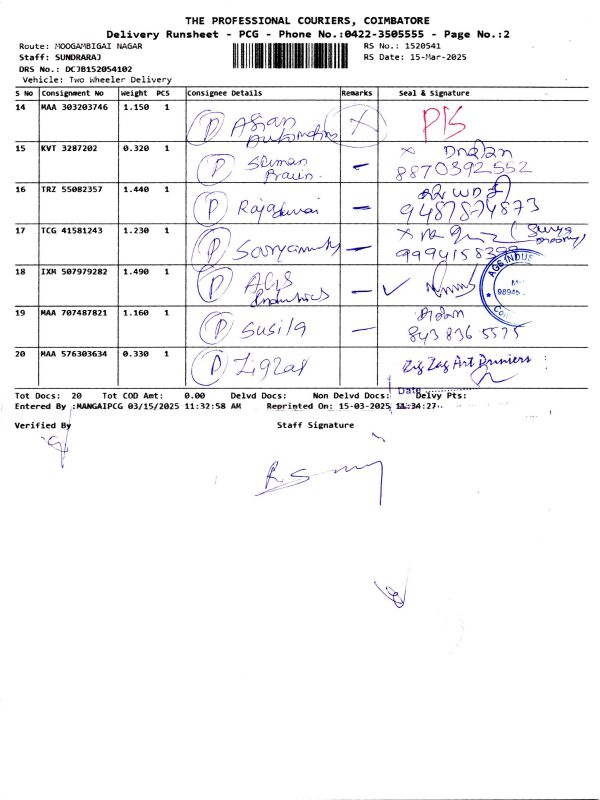 THE PROFESSIONAL COURIERS, COIMBATORE
Delivery Runsheet - PCG - Phone No.:0422-3505555 - Page No.:2
Route: MOOGAMBIGAI NAGAR RS No.: 1520541
Staff: SUNDRARAJ RS Date: 15-Mar-2025
DRS No.: DCJB152054102
Vehicle: Two Wheeler Delivery
S No Consignment No Weight PCS Consignee Details Remarks Seal & Signature
14 MAA 303203746 1.150 1 P Asian Automation X P/S
15 KVT 3287202 0.320 1 P Suman 8870392552
16 TRZ 55082357 1.440 1 P Rajadurai 9487874873
17 TCG 41581243 1.230 1 P
18 IXM 507979282 1.490 1 P AGS Industries ✓ AGS INDUS
19 MAA 707487821 1.160 1 P Susila 843 836 5575
20 MAA 576303634 0.330 1 P Zigzag Zig Zag Art Printers
Date
Tot Docs: 20 Tot COD Amt: 0.00 Delvd Docs: Non Delvd Docs: Delvy Pts:
Entered By :MANGAIPCG 03/15/2025 11:32:58 AM Reprinted On: 15-03-2025 11:34:27
Verified By Staff Signature